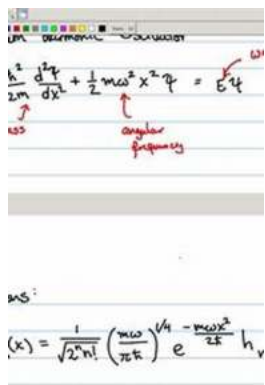 ħ²/2m d²ψ/dx² + 1/2 mω² x² ψ = Eψ
angular
frequency
(x) = 1/√(2ⁿ n!) (mω/πħ)^1/4 e^(-mωx²/2ħ) h